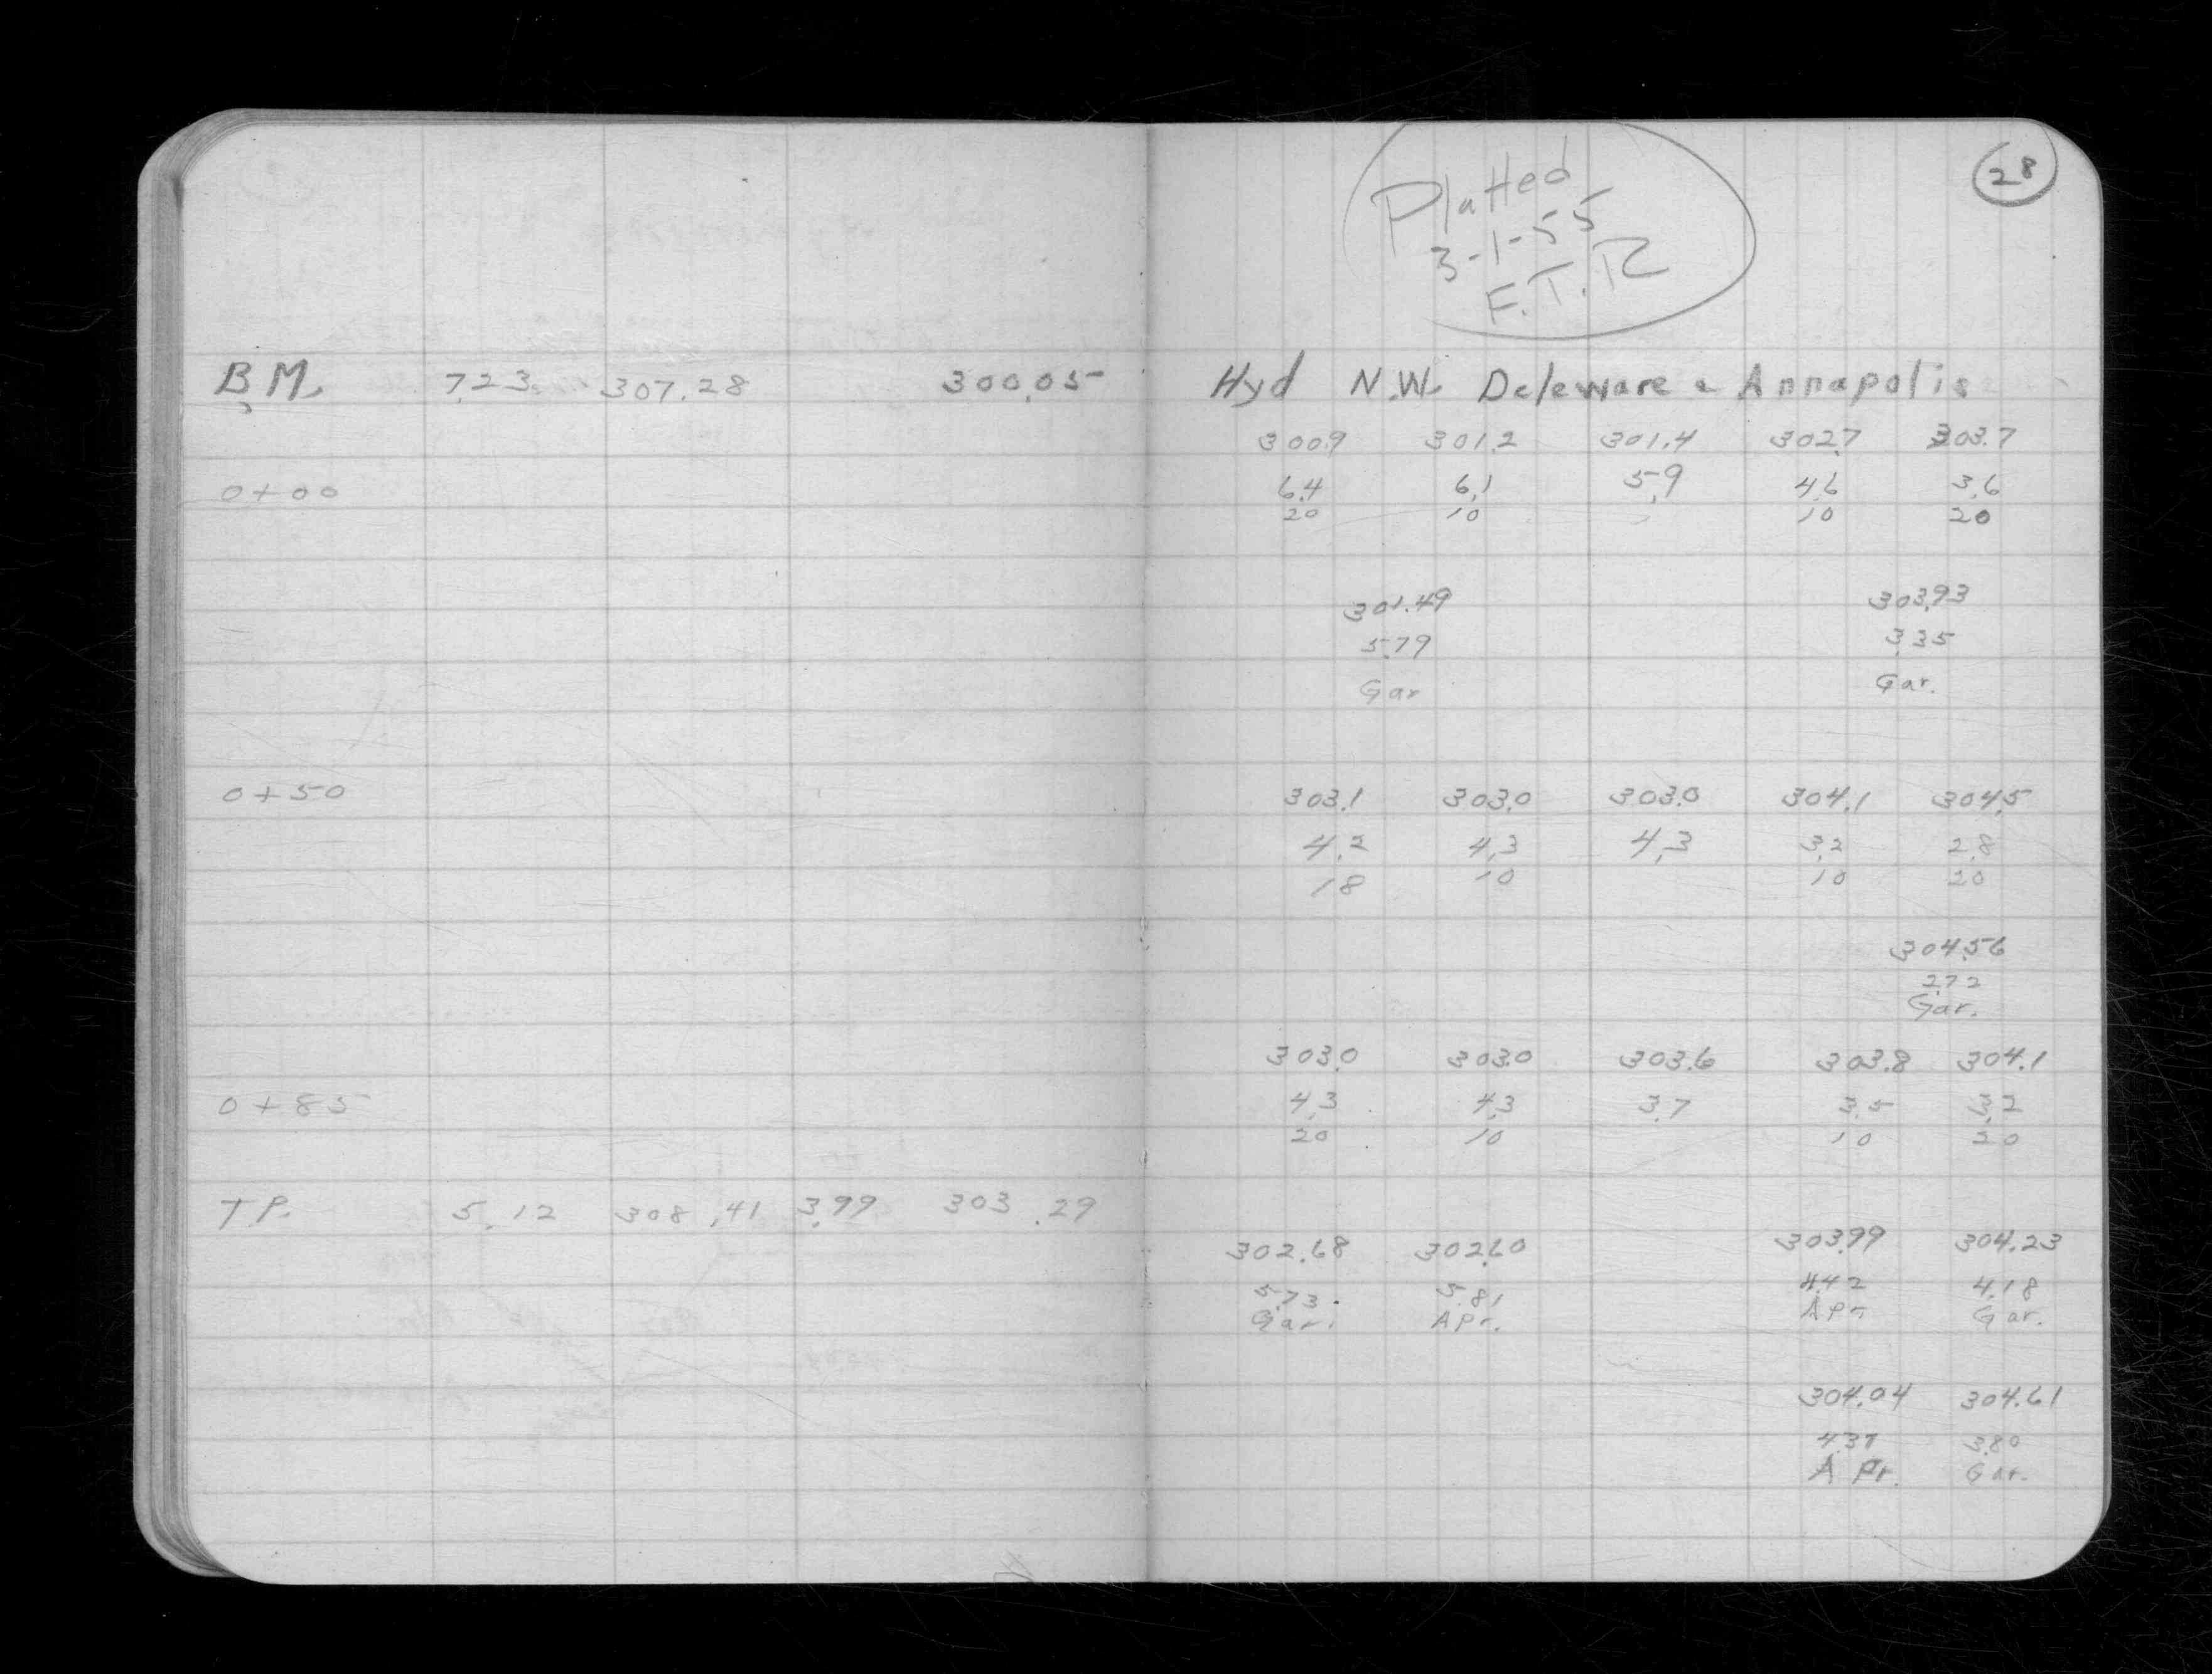 28
Platted
3-1-55
F.T.R
B.M. 7.23 307.28 300.05 Hyd N.W. Deleware & Annapolis
300.9 301.2 301.4 302.7 303.7
0+00 6.4 6.1 5.9 4.6 3.6
20 10 10 20
301.49 303.93
5.79 3.35
Gar Gar.
0+50 303.1 303.0 303.0 304.1 304.5
4.2 4.3 4.3 3.2 2.8
18 10 10 20
304.56
2.72
Gar.
303.0 303.0 303.6 303.8 304.1
0+85 4.3 4.3 3.7 3.5 3.2
20 10 10 20
T.P. 5.12 308.41 3.99 303.29
302.68 302.60 303.99 304.23
5.73 5.81 4.42 4.18
Gar. Apr. Apr Gar.
304.04 304.61
4.37 3.80
A Pr. Gar.